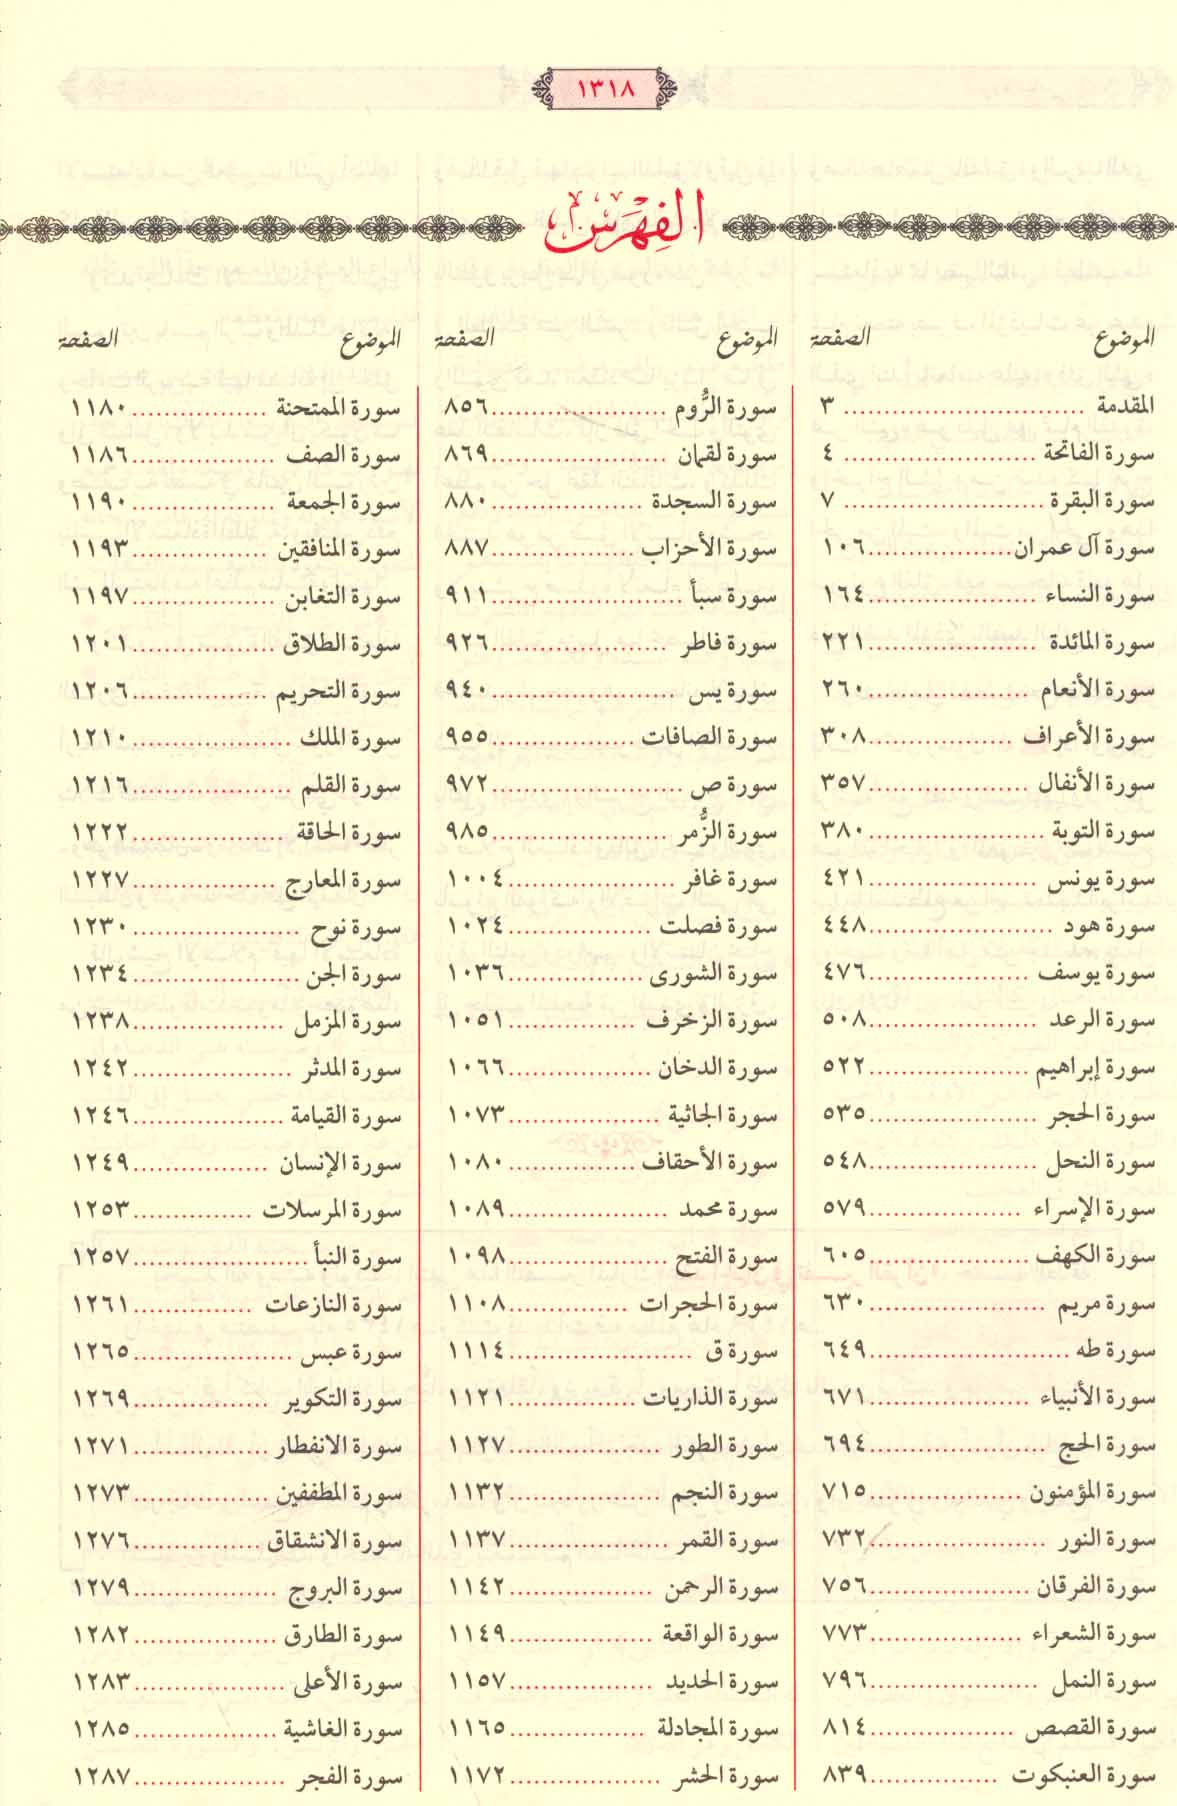 ١٣١٨
الفِهْرَس
الموضوع الصفحة
المقدمة .............................. ٣
سورة الفاتحة ........................ ٤
سورة البقرة ........................ ٧
سورة آل عمران.................. ١٠٦
سورة النساء ..................... ١٦٤
سورة المائدة ..................... ٢٢١
سورة الأنعام .................... ٢٦٠
سورة الأعراف .................. ٣٠٨
سورة الأنفال .................... ٣٥٧
سورة التوبة ..................... ٣٨٠
سورة يونس ..................... ٤٢١
سورة هود ....................... ٤٤٨
سورة يوسف .................... ٤٧٦
سورة الرعد ..................... ٥٠٨
سورة إبراهيم .................... ٥٢٢
سورة الحجر ..................... ٥٣٥
سورة النحل ..................... ٥٤٨
سورة الإسراء ................... ٥٧٩
سورة الكهف .................... ٦٠٥
سورة مريم ...................... ٦٣٠
سورة طه ......................... ٦٤٩
سورة الأنبياء .................... ٦٧١
سورة الحج ...................... ٦٩٤
سورة المؤمنون ................... ٧١٥
سورة النور ...................... ٧٣٢
سورة الفرقان .................... ٧٥٦
سورة الشعراء ................... ٧٧٣
سورة النمل ..................... ٧٩٦
سورة القصص .................. ٨١٤
سورة العنبكوت ................ ٨٣٩
الموضوع الصفحة
سورة الرُّوم ...................... ٨٥٦
سورة لقمان ...................... ٨٦٩
سورة السجدة ................... ٨٨٠
سورة الأحزاب .................. ٨٨٧
سورة سبأ ........................ ٩١١
سورة فاطر ...................... ٩٢٦
سورة يس ....................... ٩٤٠
سورة الصافات .................. ٩٥٥
سورة ص ........................ ٩٧٢
سورة الزُّمر ...................... ٩٨٥
سورة غافر ..................... ١٠٠٤
سورة فصلت .................. ١٠٢٤
سورة الشورى ................. ١٠٣٦
سورة الزخرف ................ ١٠٥١
سورة الدخان .................. ١٠٦٦
سورة الجاثية ................... ١٠٧٣
سورة الأحقاف ................ ١٠٨٠
سورة محمد .................... ١٠٨٩
سورة الفتح .................... ١٠٩٨
سورة الحجرات ............... ١١٠٨
سورة ق ....................... ١١١٤
سورة الذاريات ................ ١١٢١
سورة الطور ................... ١١٢٧
سورة النجم ................... ١١٣٢
سورة القمر .................... ١١٣٧
سورة الرحمن .................. ١١٤٢
سورة الواقعة .................. ١١٤٩
سورة الحديد .................. ١١٥٧
سورة المجادلة ................. ١١٦٥
سورة الحشر ................... ١١٧٢
الموضوع الصفحة
سورة الممتحنة ................. ١١٨٠
سورة الصف .................. ١١٨٦
سورة الجمعة .................. ١١٩٠
سورة المنافقين ................. ١١٩٣
سورة التغابن .................. ١١٩٧
سورة الطلاق .................. ١٢٠١
سورة التحريم ................. ١٢٠٦
سورة الملك .................... ١٢١٠
سورة القلم .................... ١٢١٦
سورة الحاقة ................... ١٢٢٢
سورة المعارج .................. ١٢٢٧
سورة نوح ..................... ١٢٣٠
سورة الجن .................... ١٢٣٤
سورة المزمل ................... ١٢٣٨
سورة المدثر .................... ١٢٤٢
سورة القيامة ................... ١٢٤٦
سورة الإنسان ................. ١٢٤٩
سورة المرسلات ............... ١٢٥٣
سورة النبأ ...................... ١٢٥٧
سورة النازعات ............... ١٢٦١
سورة عبس .................... ١٢٦٥
سورة التكوير ................. ١٢٦٩
سورة الانفطار ................. ١٢٧١
سورة المطففين ................. ١٢٧٣
سورة الانشقاق ................ ١٢٧٦
سورة البروج .................. ١٢٧٩
سورة الطارق .................. ١٢٨٢
سورة الأعلى ................... ١٢٨٣
سورة الغاشية .................. ١٢٨٥
سورة الفجر ................... ١٢٨٧